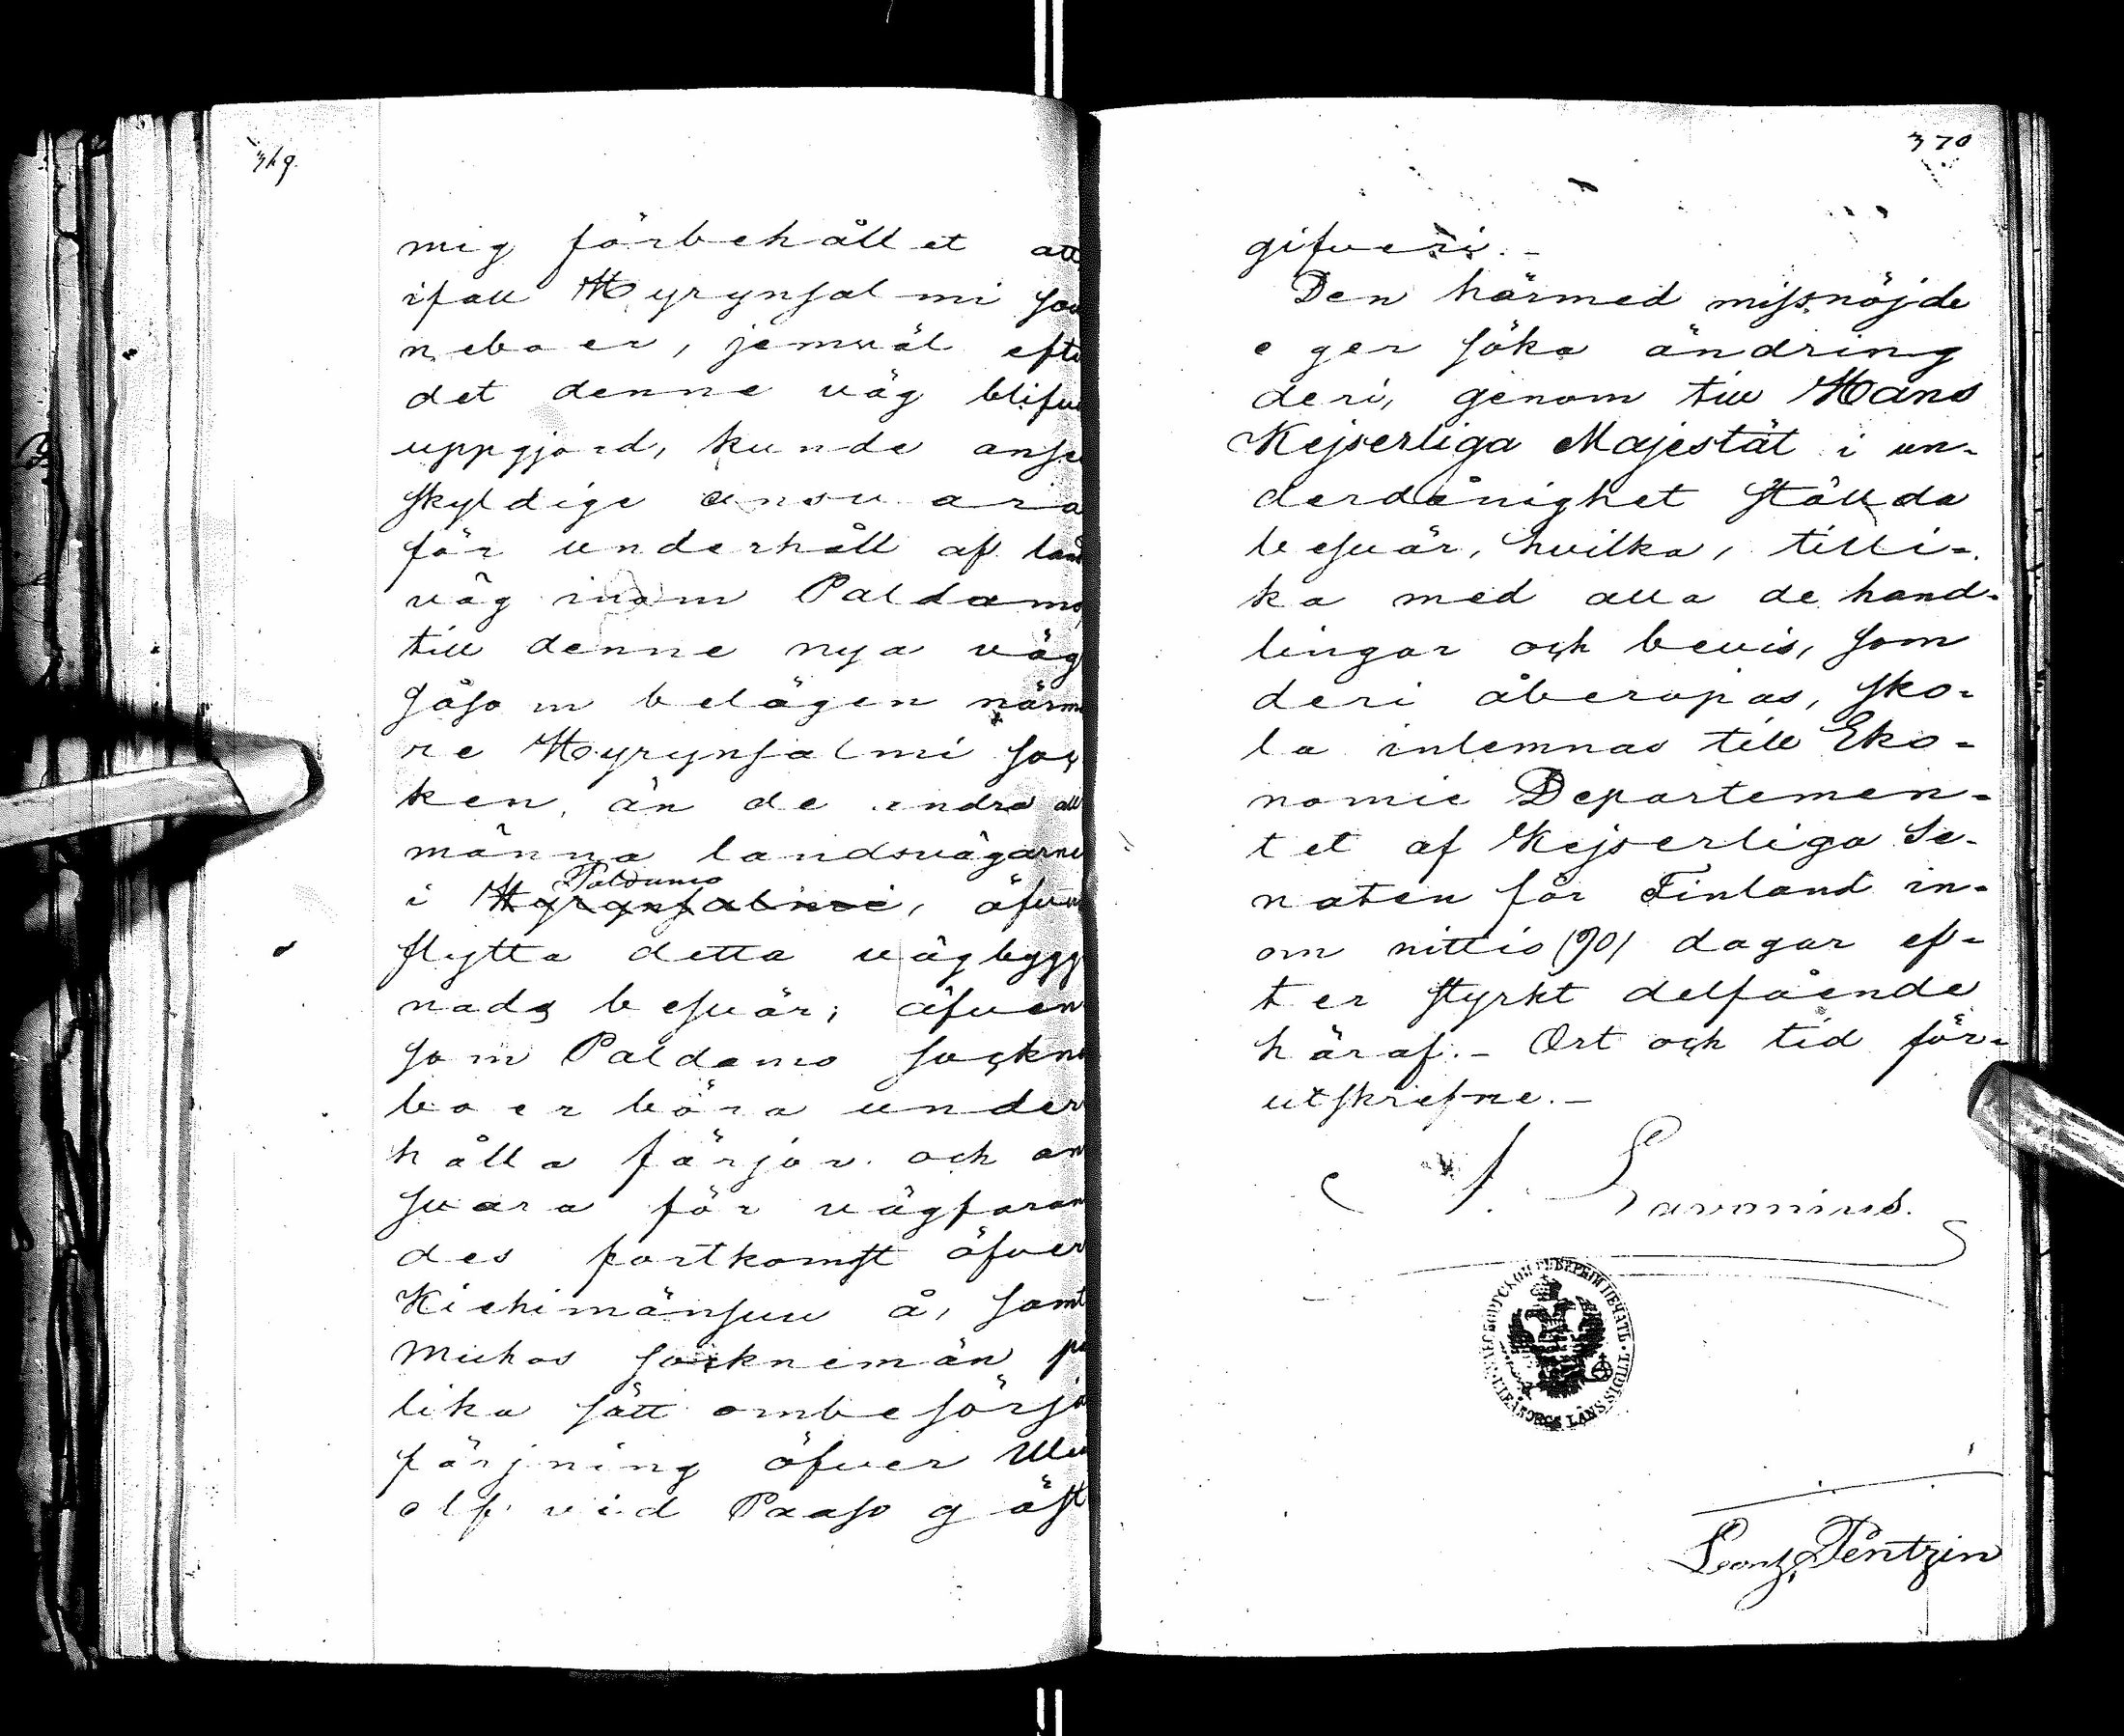 369.
mig förbehållet att
ifall Hyrynsalmi soc
neboer, jemväl efte
det denne väg blifvi
uppgjord, kunde anse
skyldige ansvara
för underhåll af land
väg inom Paldamo,
till denne nya väg
såsom belägen närma
re Hyrynsalmi soc
ken, än de andra all
männa landsvägarne
Paldamo
i Hyrynsalmi, öfver
flytta detta vägbygg
nads besvär; äfven
som Paldamo sockne
boer böra under
hålla färjor och an
svara för vägfaran
des fortkomst öfver
Kiehimänsuu å, samt
Muhos socknemän på
lika sätt ombesörja
färjning öfver Uleå
elf vid Paaso gäst
370
gifveri.-
Den härmed missnöjde
eger söka ändring
deri, genom till Hans
Kejserliga Majestät i un-
derdånighet ställda
besvär, hvilka, tilli-
ka med alla de hand-
lingar och bevis, som
deri åberopas, sko-
la inlemnas till Eko-
nomie Departemen-
tet af Kejserliga Se-
naten för Finland in-
om nittio (90) dagar ef-
ter styrkt delfående
häraf.- Ort och tid för-
utskrefne.-
S. Lavonius.
УЛЕАБОРГСКОЙ ГУБЕРНІИ ПЕЧАТЬ · ULEÅBORGS LÄNS SIGILL
Pentzin